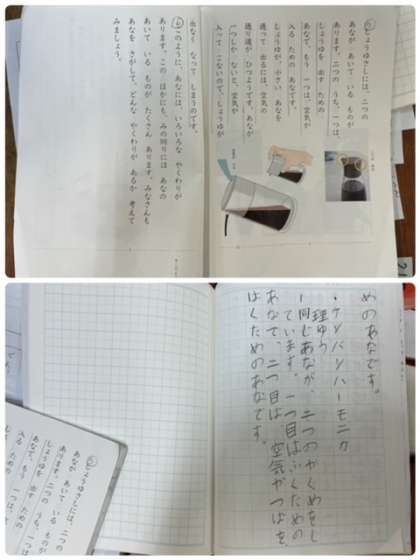 ⑤しょうゆさしには、二つの
あなが あいて いる ものが
あります。二つの うち、一つは、
しょうゆを 出す ための
あなで、もう 一つは、空気が
入る ための あなです。
しょうゆが、小さい あなを
通って 出るには、空気の
通り道が ひつようです。あなが
一つしか ないと、空気が
入って こないので、しょうゆが
出なく なって しまうのです。
⑥このように、あなには、いろいろな やくわりが
あります。この ほかにも、みの回りには あなの
あいて いる ものが たくさん あります。みなさんも
あなを さがして、どんな やくわりが あるか 考えて
みましょう。
めのあなです。
・ケンバンハーモニカ
理ゆう
同じあなが、二つのやくめをし
ています。一つ目はふくための
あなで、二つ目は、空気がつばを
はくためのあなです。
⑤しょうゆさしには、二つの
あなが あいて いる
あります。二つの うち、
しょうゆを 出す ための
あなで、もう 一つは、
入る ための